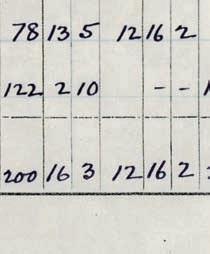 78 13 5 12 16 2
122 2 10 - -
200 16 3 12 16 2